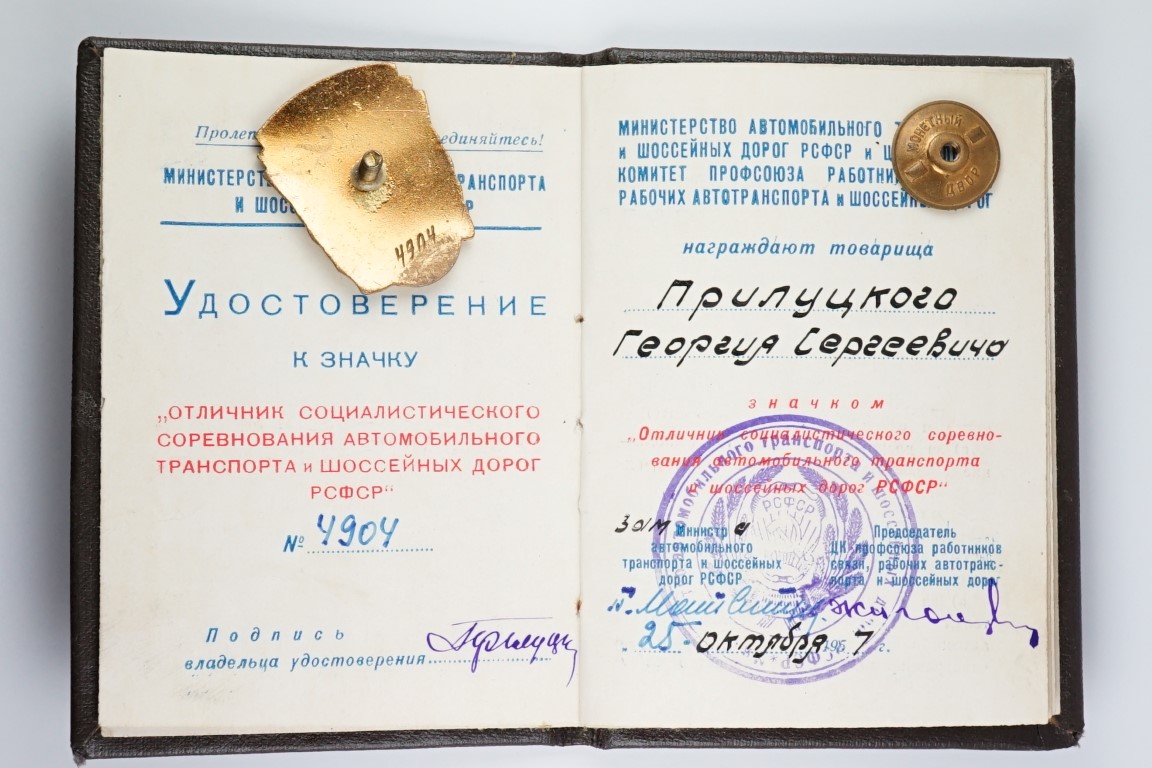 единяйтесь!
РАНСПОРТА
Удостоверение
к значку
„ОТЛИЧНИК СОЦИАЛИСТИЧЕСКОГО
СОРЕВНОВАНИЯ АВТОМОБИЛЬНОГО
ТРАНСПОРТА и ШОССЕЙНЫХ ДОРОГ
РСФСР“
№ 4904
Подпись
владельца удостоверения
Прилуцк
4904
МИНИСТЕРСТВО АВТОМОБИЛЬНОГО
и ШОССЕЙНЫХ ДОРОГ РСФСР и
КОМИТЕТ ПРОФСОЮЗА
РАБОЧИХ АВТОТРАНСПОРТА и ДОРОГ
МОНЕТНЫЙ
ДВОР
награждают товарища
Прилуцкого
Георгия Сергеевича
значком
„Отличник социалистического соревно-
вания автомобильного транспорта
и шоссейных дорог РСФСР“
Зам Министра
автомобильного
транспорта и шоссейных
дорог РСФСР
Председатель
ЦК профсоюза работников
связи, рабочих автотранс-
порта и шоссейных дорог
25 октября 1957 г.
автомобильного транспорта и шоссейных
РСФСР